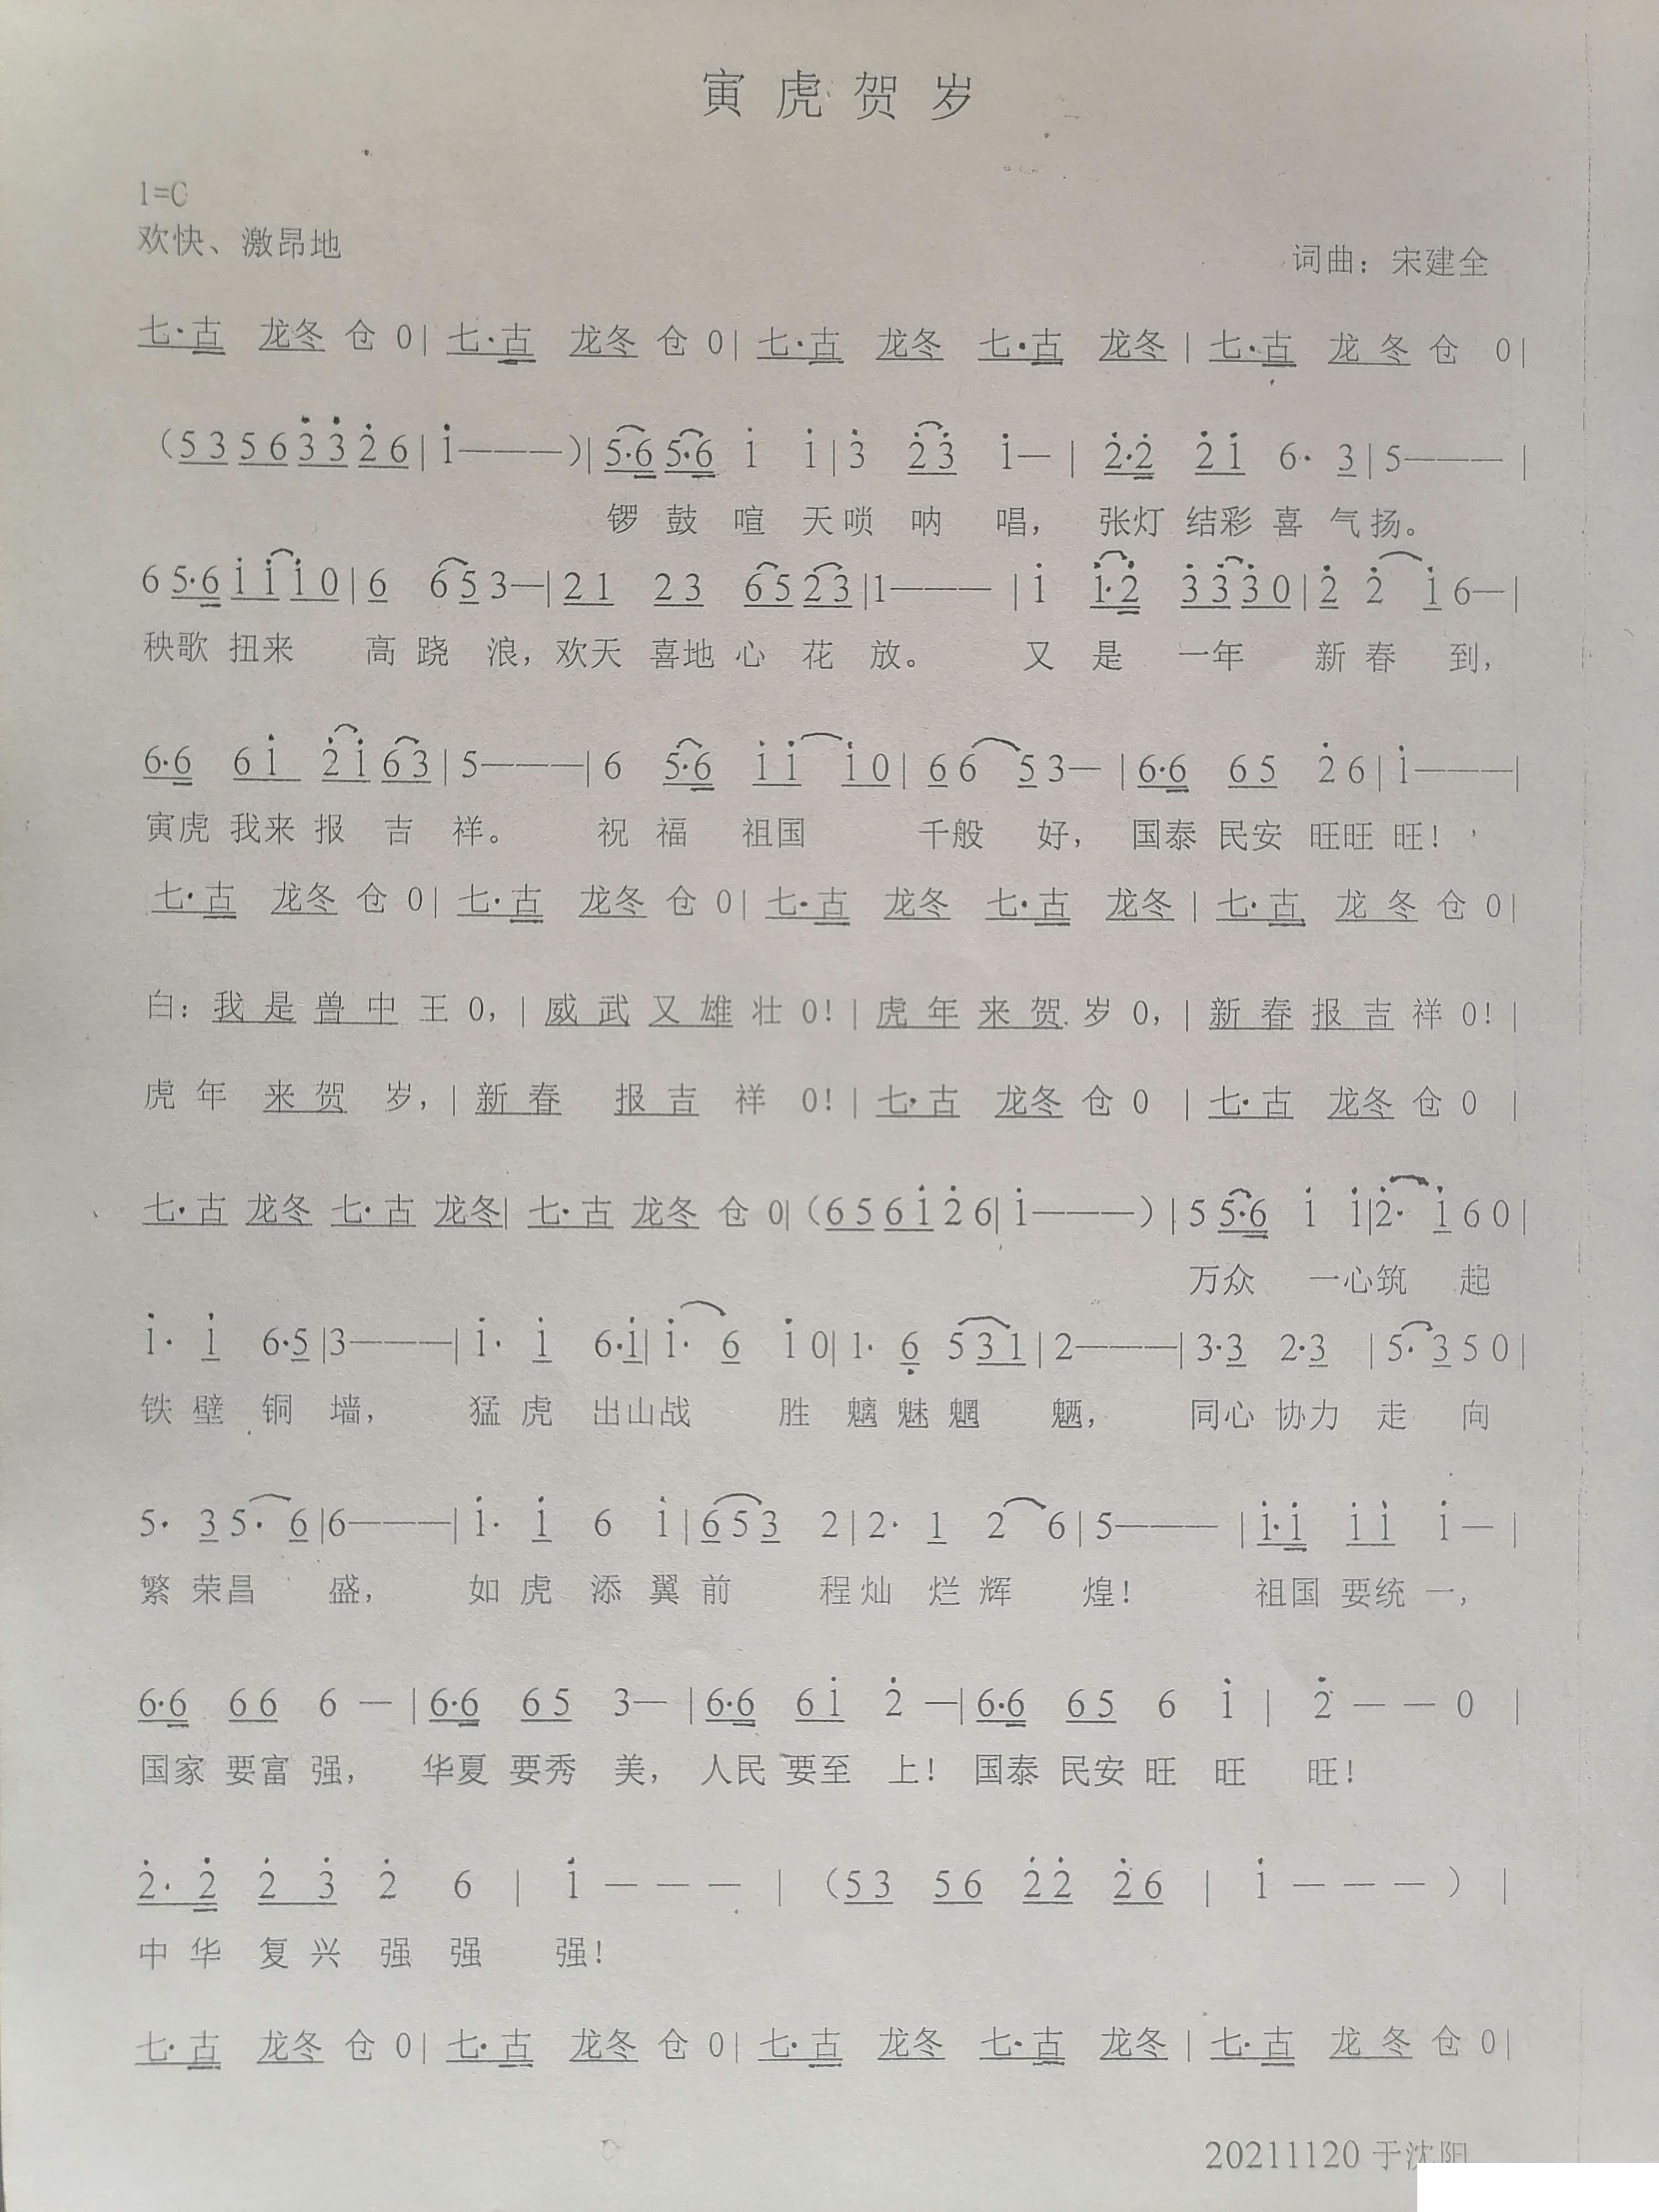 寅虎贺岁
1=C
欢快、激昂地
词曲：宋建全
七·古 龙冬 仓 0| 七·古 龙冬 仓 0| 七·古 龙冬 七·古 龙冬 | 七·古 龙 冬 仓 0|
（5 3 5 6 3̇ 3̇ 2̇ 6 | 1̇———）| 5·6 5·6 1̇ 1̇ | 3̇ 2̇ 3̇ 1̇— | 2̇·2̇ 2̇ 1̇ 6· 3 | 5——— |
锣 鼓 喧 天 唢 呐 唱， 张灯 结彩 喜 气 扬。
6 5·6 1̇ 1̇ 1̇ 0 | 6 6 5 3—| 2 1 2 3 6 5 2 3 |1——— | 1̇ 1̇·2̇ 3̇ 3̇ 3̇ 0 | 2̇ 2̇ 1̇ 6—|
秧歌 扭来 高 跷 浪，欢天 喜地 心 花 放。 又 是 一年 新 春 到，
6·6 6 1̇ 2̇ 1̇ 6 3 | 5———| 6 5·6 1̇ 1̇ 1̇ 0 | 6 6 5 3— | 6·6 6 5 2̇ 6 | 1̇———|
寅虎 我来 报 吉 祥。 祝 福 祖国 千般 好， 国泰 民安 旺旺 旺！
七·古 龙冬 仓 0| 七·古 龙冬 仓 0| 七·古 龙冬 七·古 龙冬 | 七·古 龙 冬 仓 0|
白：我 是 兽 中 王 0，| 威 武 又 雄 壮 0！| 虎 年 来 贺 岁 0，| 新 春 报 吉 祥 0！|
虎 年 来 贺 岁，| 新 春 报 吉 祥 0！| 七·古 龙冬 仓 0 | 七·古 龙冬 仓 0 |
七·古 龙冬 七·古 龙冬| 七·古 龙冬 仓 0|（6 5 6 1̇ 2̇ 6| 1̇———）| 5 5·6 1̇ 1̇|2̇· 1̇ 6 0 |
万众 一心筑 起
1̇· 1̇ 6·5 |3———| 1̇· 1̇ 6·1̇| 1̇· 6 1̇ 0| 1· 6̣ 5 3 1 | 2———| 3·3 2·3 | 5· 3 5 0 |
铁 壁 铜 墙， 猛 虎 出山战 胜 魑 魅 魍 魉， 同心 协力 走 向
5· 3 5· 6 |6———| 1̇· 1̇ 6 1̇ | 6 5 3 2 | 2· 1 2 6 | 5——— | 1̇·1̇ 1̇ 1̇ 1̇ — |
繁 荣昌 盛， 如 虎 添 翼 前 程 灿 烂 辉 煌！ 祖国 要统 一，
6·6 6 6 6 — | 6·6 6 5 3— | 6·6 6 1̇ 2̇ —| 6·6 6 5 6 1̇ | 2̇ — — 0 |
国家 要富 强， 华夏 要秀 美， 人民 要至 上！ 国泰 民安 旺 旺 旺！
2̇· 2̇ 2̇ 3̇ 2̇ 6 | 1̇ — — — | （5 3 5 6 2̇ 2̇ 2̇ 6 | 1̇ — — — ） |
中 华 复 兴 强 强 强！
七·古 龙冬 仓 0| 七·古 龙冬 仓 0| 七·古 龙冬 七·古 龙冬 | 七·古 龙 冬 仓 0|
20211120 于沈阳